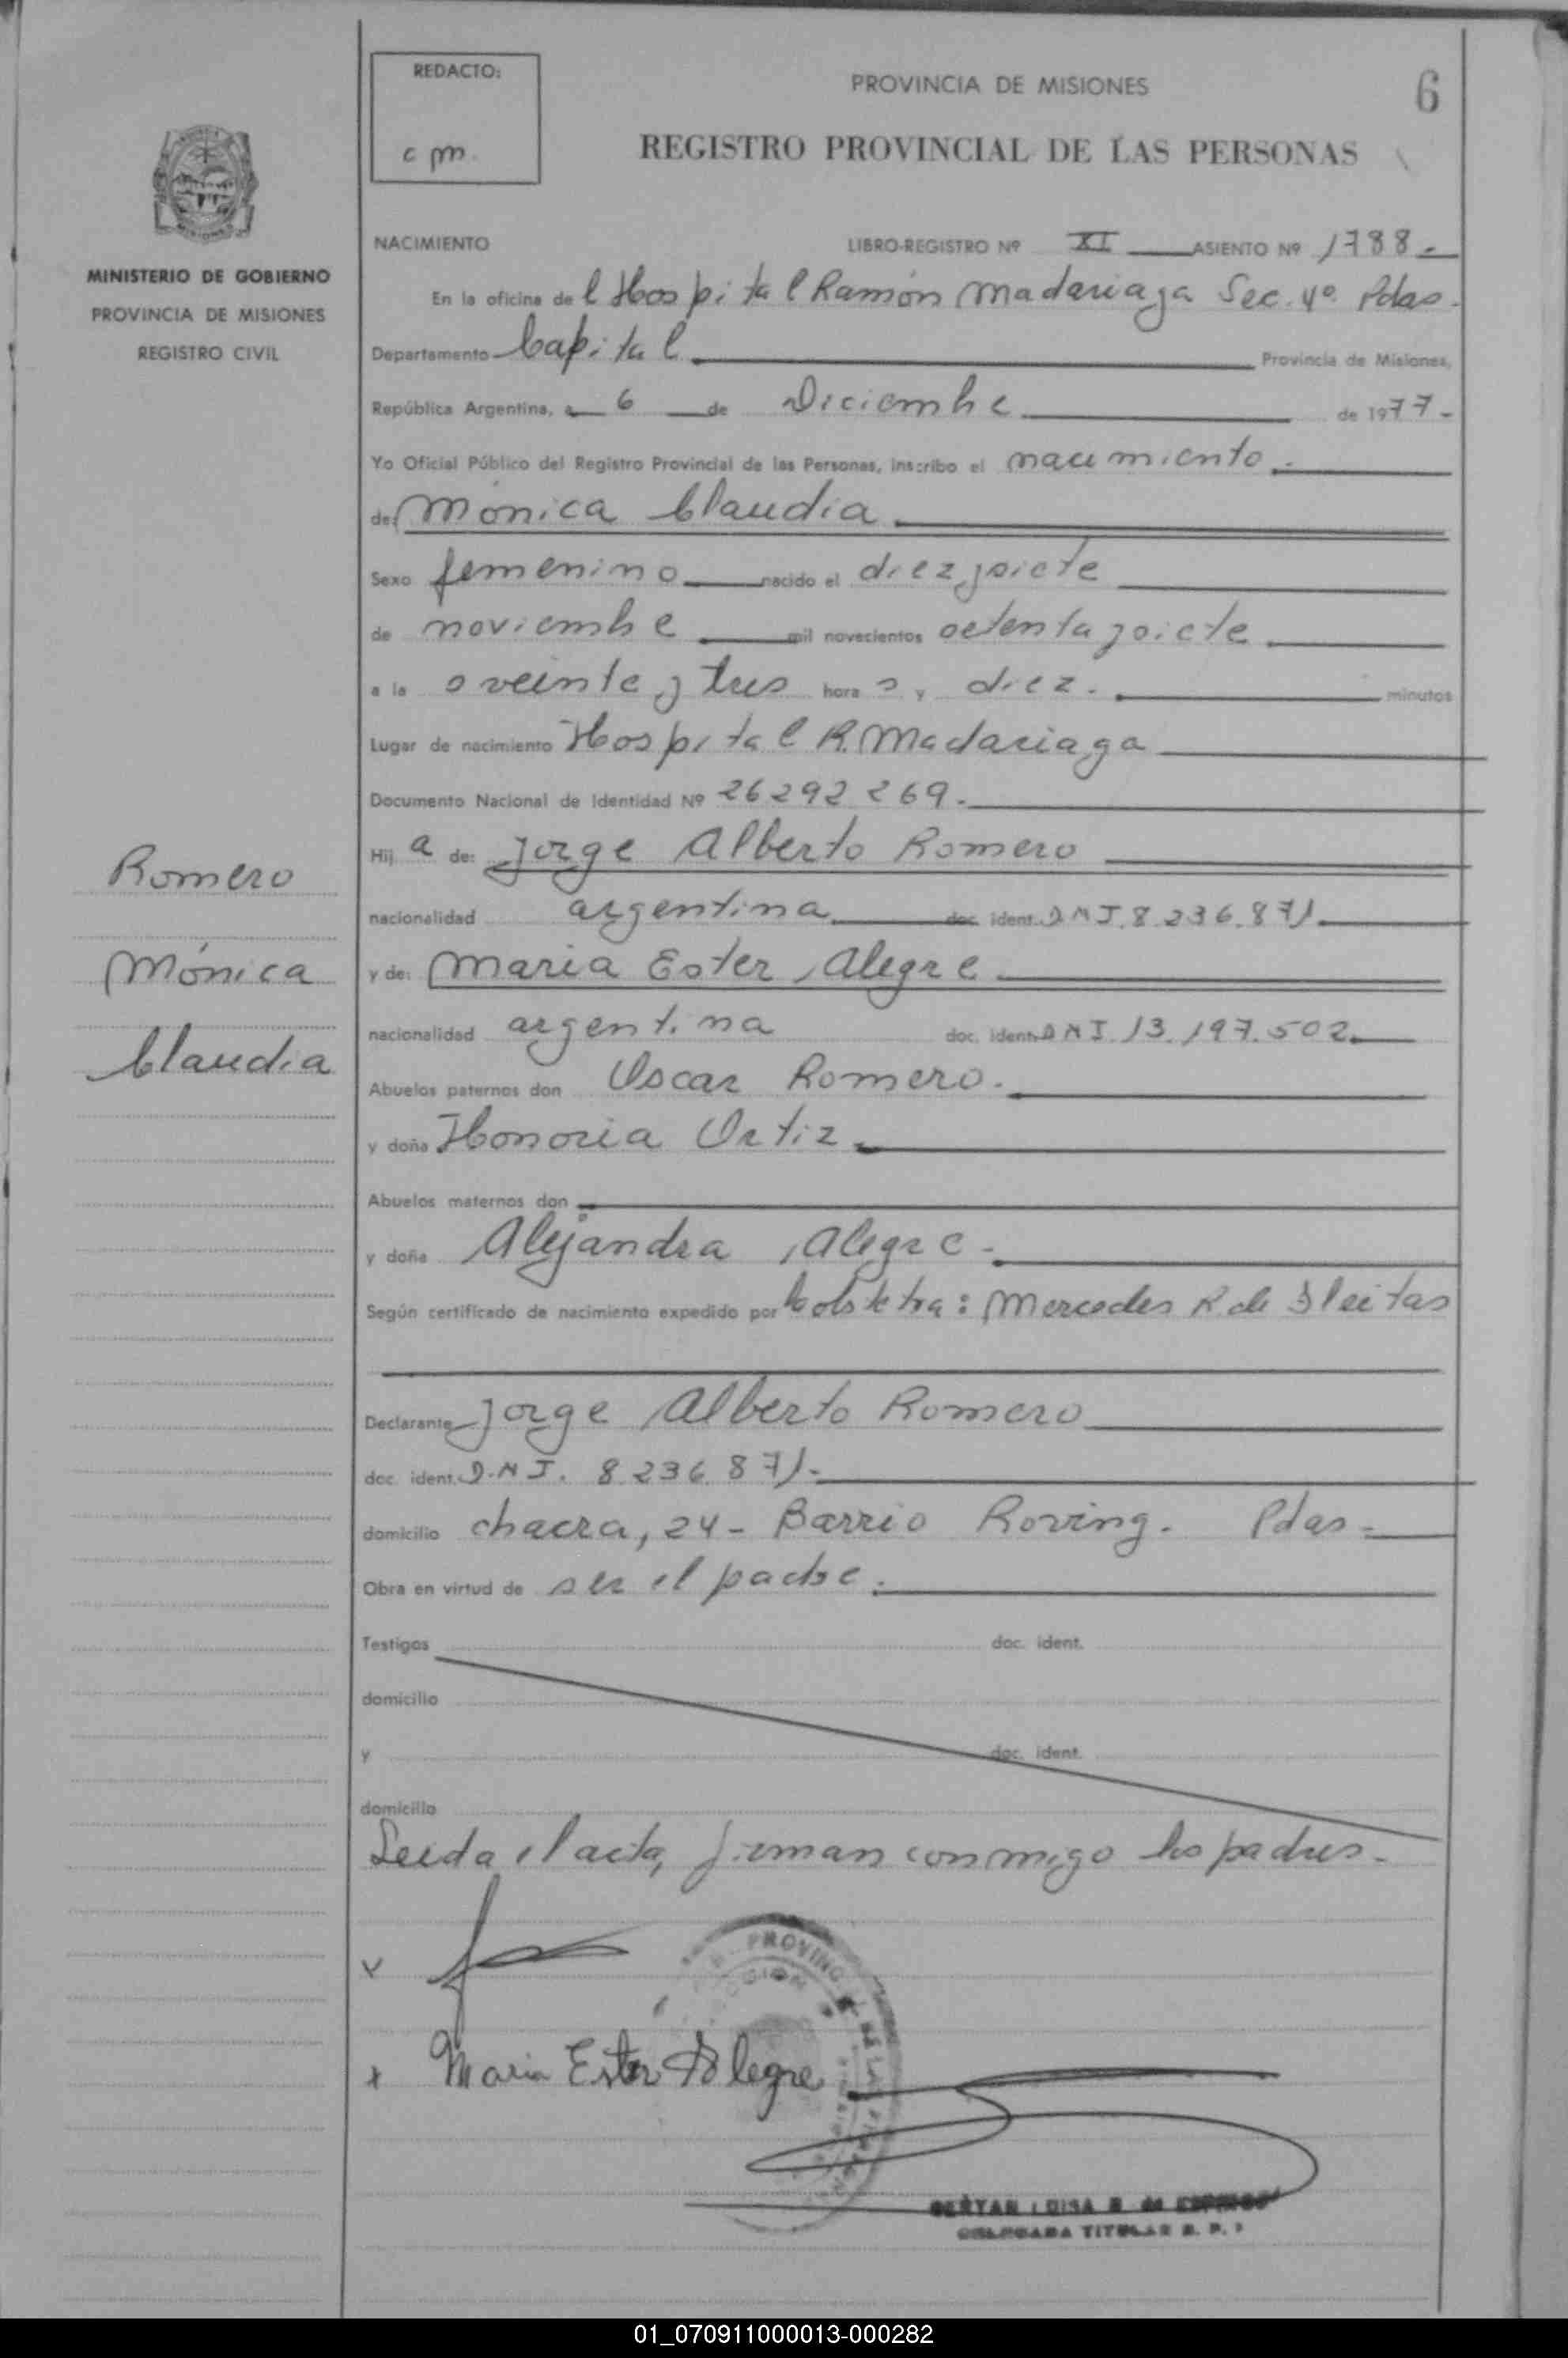 REDACTO:
c m.
PROVINCIA DE MISIONES
6
REGISTRO PROVINCIAL DE LAS PERSONAS
MINISTERIO DE GOBIERNO
PROVINCIA DE MISIONES
REGISTRO CIVIL
NACIMIENTO LIBRO-REGISTRO Nº XI ASIENTO Nº 1788-
En la oficina del Hospital Ramón Madariaga Sec. 4º Pdas-
Departamento Capital Provincia de Misiones,
República Argentina, a 6 de Diciembre de 1977-
Yo Oficial Público del Registro Provincial de las Personas, inscribo el nacimiento.
de: Mónica Claudia
Sexo femenino nacido el diez y siete
de noviembre mil novecientos setenta y siete
a las veinte y tres horas y diez. minutos
Lugar de nacimiento Hospital R. Madariaga
Documento Nacional de Identidad Nº 26292269.
Hija de: Jorge Alberto Romero
nacionalidad argentina doc. ident. DNI. 8.236.871.
y de: Maria Ester Alegre
nacionalidad argentina doc. ident. DNI 13.197.502
Abuelos paternos don Oscar Romero.
y doña Honoria Ortiz
Abuelos maternos don
y doña Alejandra Alegre-
Según certificado de nacimiento expedido por la obstetra: Mercedes R. de Fleitas
Declarante Jorge Alberto Romero
doc. ident. D.N.I. 8.236.871-
domicilio chacra, 24- Barrio Roving. Pdas-
Obra en virtud de ser el padre.
Testigos doc. ident.
domicilio
y doc. ident.
domicilio
Leida el acta, firman conmigo los padres.
x
x Maria Ester Alegre
Romero
Mónica
Claudia
PROVINC DE LAS
LUISA
TITULAR
01_070911000013-000282